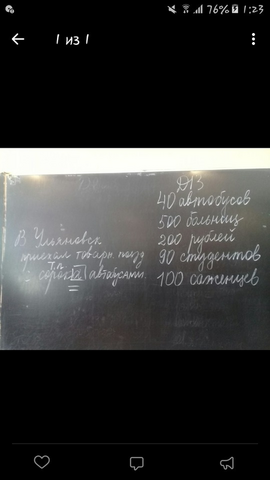 76% 1:23
1 из 1
ДЗ
40 автобусов
500 больниц
200 рублей
90 студентов
100 саженцев
В Ульяновск
приехал товарн. поезд
с автобусами.